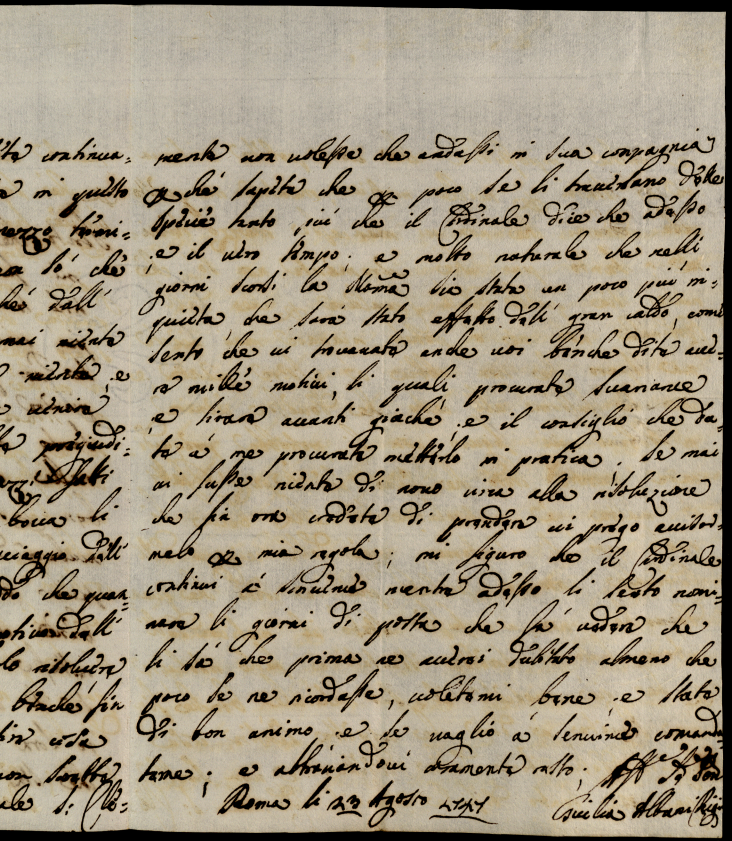 ite continua=
in questo
mezzo termi=
so che
che dall'
mai niente
niente, e
venire
pregiudi=
fatti
bocca li
viaggio dall'
che quan=
dall'
lo risolvere
benche sin
cosa
non
ale S:
mente non volesse che andassi in sua compagnia
che sapete che poco se li traversano delle
specie tanto più che il Cardinale dice che adesso
e il vero tempo; e molto naturale che nelli
giorni scorsi la Mamma sia stata un poco più in=
quieta, che sarà stato effetto dell' gran caldo, come
sento che vi trovavate anche voi benche dite aver=
e mille motivi, li quali procurate svariarve
e tirare avanti giachè, e il consiglio che da=
te a me procurate metterlo in pratica. Se mai
vi fusse niente di novo circa alla risoluzione
che sia ora credete di prendere vi prego avisar=
melo mia regola; mi figuro che il Cardinale
continui a scrivervi mentre adesso li sento nomi=
nare li giorni di posta che fà vedere che
li sà che prima ne averei dubitato almeno che
poco se ne ricordasse, voletemi bene, e state
di bon animo e se vaglio a servirve comanda=
teme; e abbraciandovi caramente resto;
Roma li 23 Agosto 1747
Giulia Albani Chigi